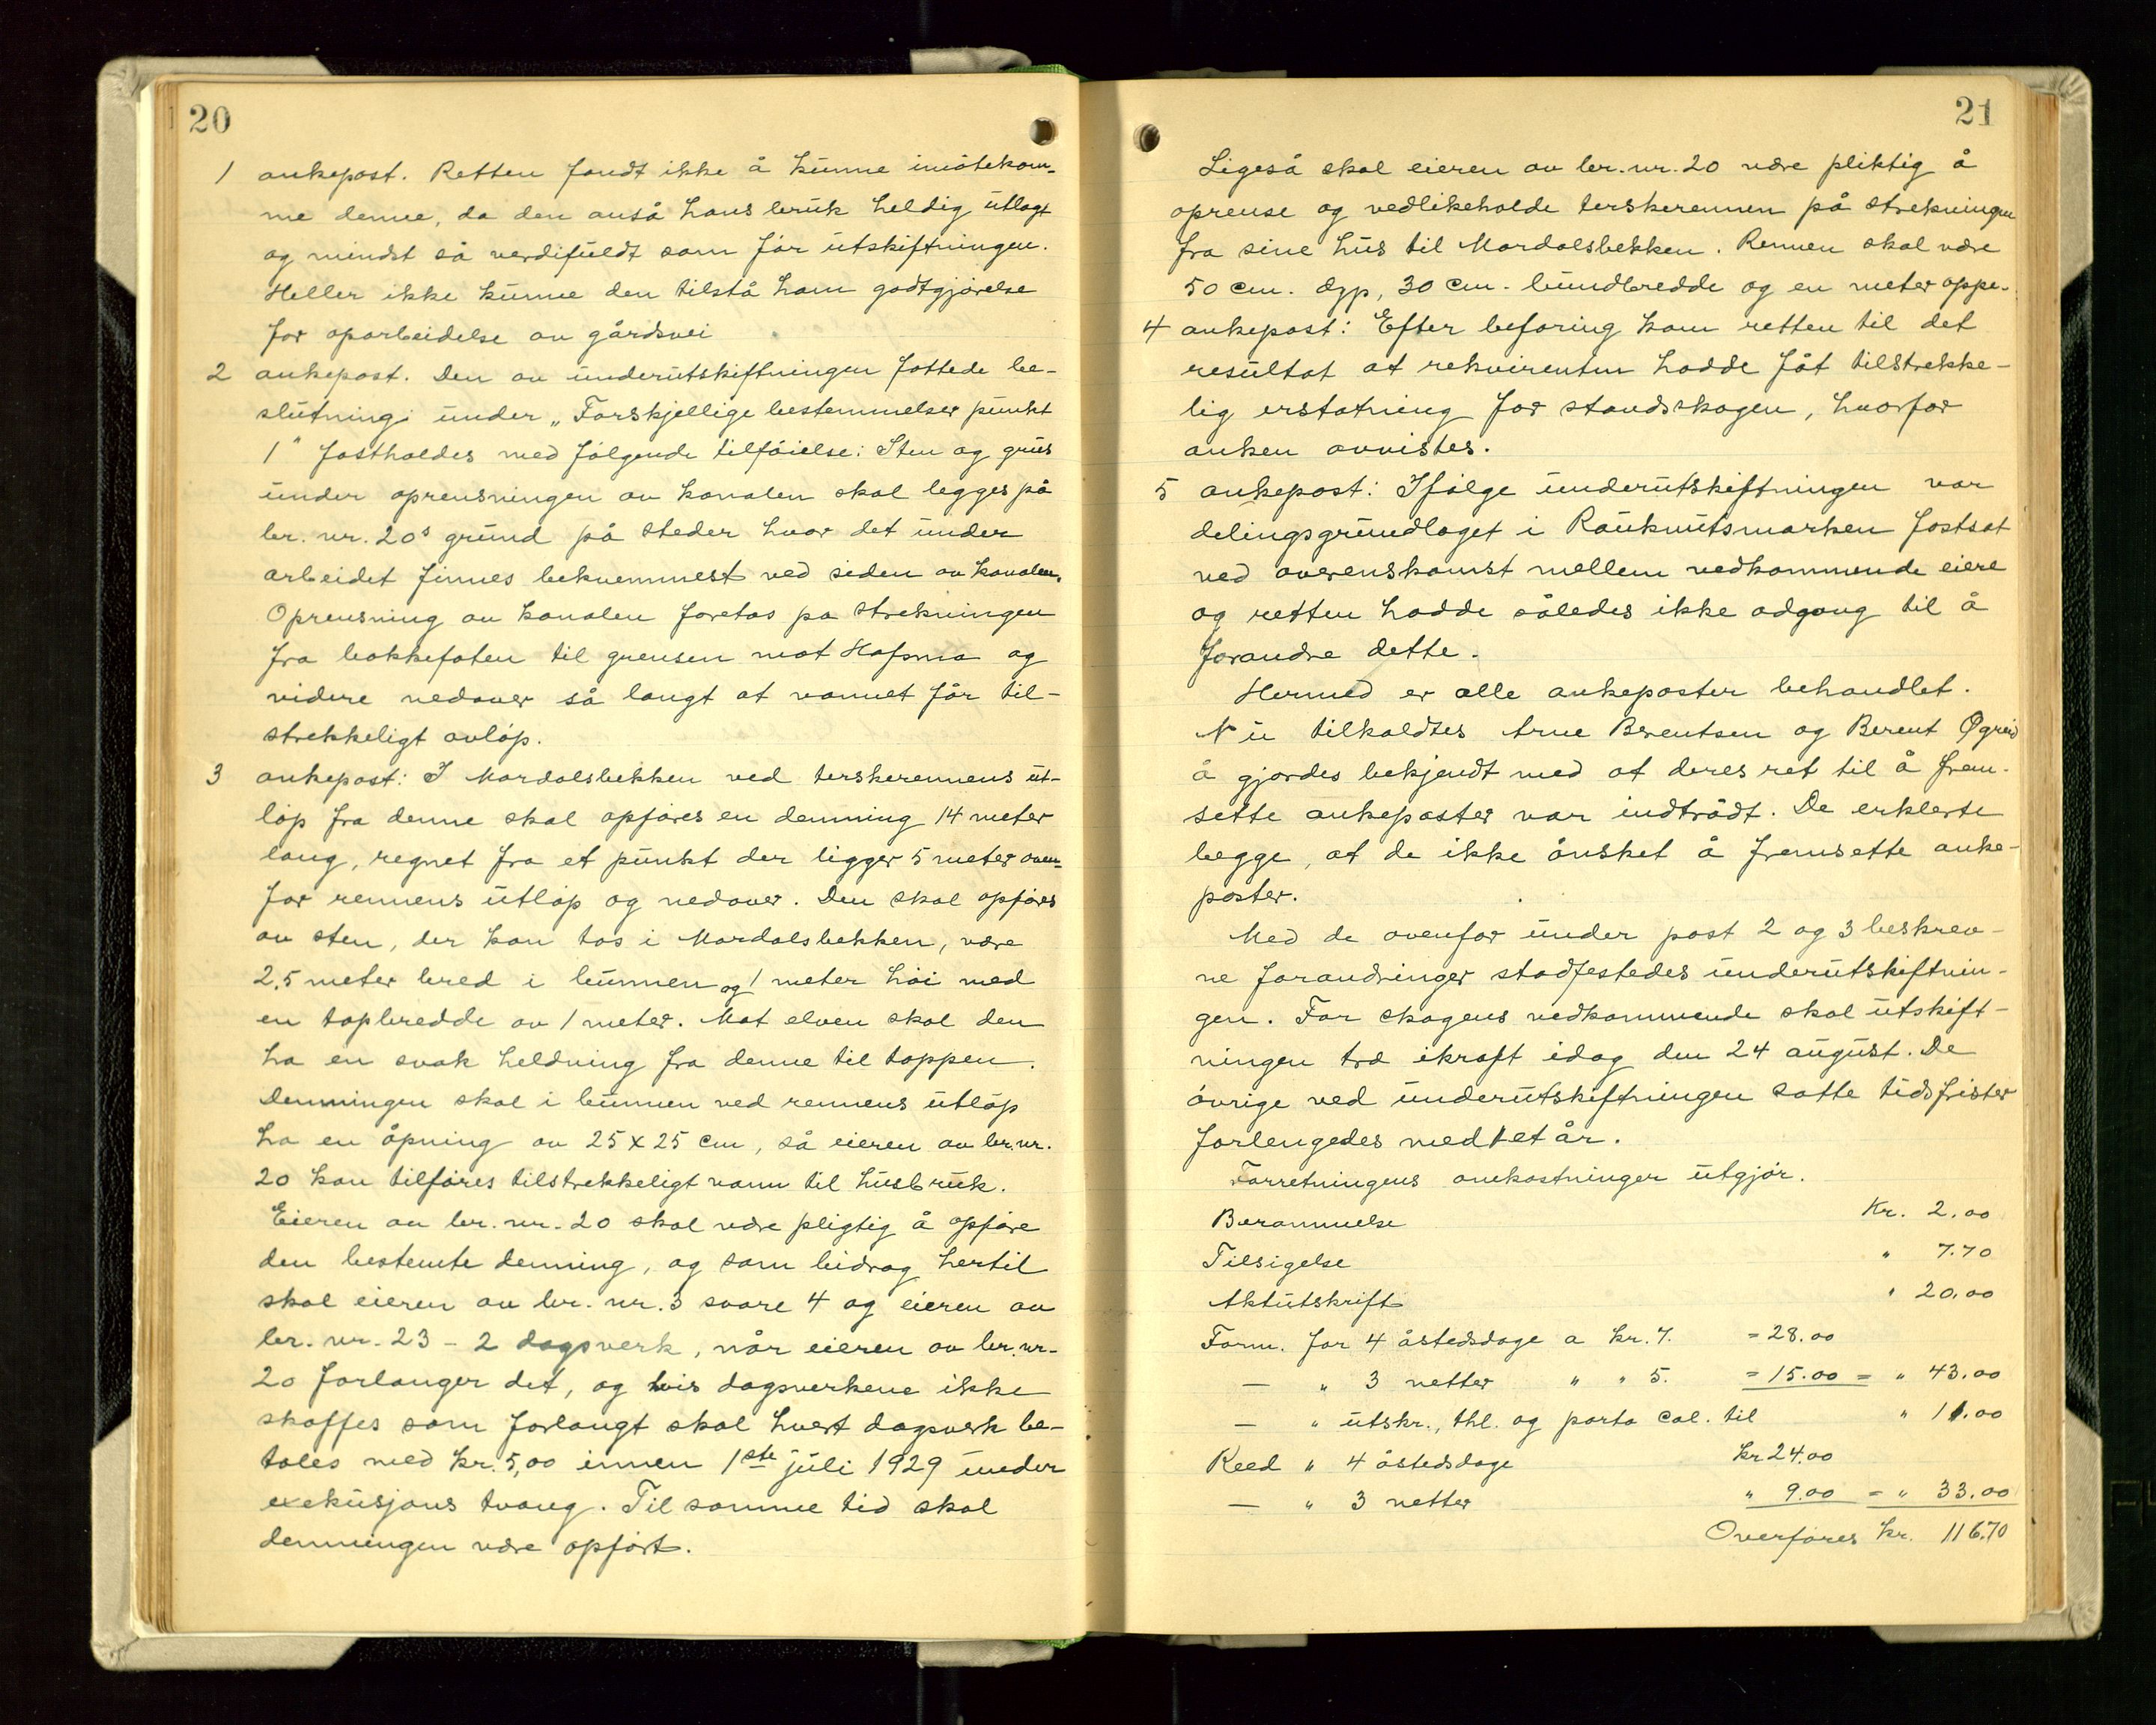 20
1 ankepost. Retten fandt ikke å kunne imøtekom-
me denne, da den anså hans bruk heldig utlagt
og mindst så verdifuldt som før utskiftningen.
Heller ikke kunne den tilstå ham godtgjørelse
for oparbeidelse av gårdsvei
2 ankepost. Den av underutskiftningen fattede be-
slutning under „Forskjellige bestemmelser punkt
1" fastholdes med følgende tilføielse: Sten og grus
under oprensningen av kanalen skal legges på
br. nr. 20s grund på steder hvor det under
arbeidet finnes bekvemmest ved siden av kanalen.
Oprensning av kanalen foretas pa strekningen
fra bakkefoten til grensen mot Hafsmo og
videre nedover så langt at vannet får til-
strekkeligt avløp.
3 ankepost: I Mardalsbekken ved terskerennens ut-
løp fra denne skal opføres en demning 14 meter
lang, regnet fra et punkt der ligger 5 meter oven-
for rennens utløp og nedover. Den skal opføres
av sten, der kan tas i Mardalsbekken, være
2,5 meter bred i bunnen og 1 meter høi med
en topbredde av 1 meter. Mot elven skal den
ha en svak heldning fra denne til toppen.
Demningen skal i bunnen ved rennens utløp
ha en åpning av 25 x 25 cm, så eieren av br. nr.
20 kan tilføres tilstrekkeligt vann til husbruk.
Eieren av br. nr. 20 skal være pligtig å opføre
den bestemte demning, og som bidrag hertil
skal eieren av br. nr. 3 svare 4 og eieren av
br. nr. 23 - 2 dagsverk, når eieren av br. nr.
20 forlanger det, og hvis dagsverkene ikke
skaffes som forlangt skal hvert dagsverk be-
tales med kr. 5,00 innen 1ste juli 1929 under
exekusjons tvang. Til samme tid skal
demningen være opført.
21
Ligeså skal eieren av br. nr. 20 være pliktig å
oprense og vedlikeholde terskerennen på strekningen
fra sine hus til Mardalsbekken. Rennen skal være
50 cm. dyp, 30 cm. bundbredde og en meter oppe.
4 ankepost: Efter befaring kom retten til det
resultat at rekvirenten hadde fåt tilstrekke-
lig erstatning for standskogen, hvorfor
anken avvistes.
5 ankepost: Ifølge underutskiftningen var
delingsgrundlaget i Rauknutsmarken fastsat
ved overenskomst mellem vedkommende eiere
og retten hadde således ikke adgang til å
forandre dette.
Hermed er alle ankeposter behandlet.
Nu tilkaldtes Arne Berentsen og Berent Øgreid
å gjordes bekjendt med at deres ret til å frem-
sette ankeposter var indtrådt. De erklerte
begge, at de ikke ønsket å fremsette anke-
poster.
Med de ovenfor under post 2 og 3 beskrev-
ne forandringer stadfestedes underutskiftnin-
gen. For skogens vedkommende skal utskift-
ningen træ ikraft idag den 24 august. De
øvrige ved underutskiftningen satte tidsfrister
forlengedes med 1 et år.
Forretningens omkostninger utgjør.
Berammelse Kr. 2.00
Tilsigelse " 7.70
Aktutskrift " 20.00
Form. for 4 åstedsdage a kr. 7. = 28.00
— " 3 netter " " 5. = 15.00 = " 43.00
— " utskr., thl. og porto cal. til " 11.00
Reed " 4 åstedsdage kr 24.00
— " 3 netter " 9.00 = " 33.00
Overføres kr. 116.70